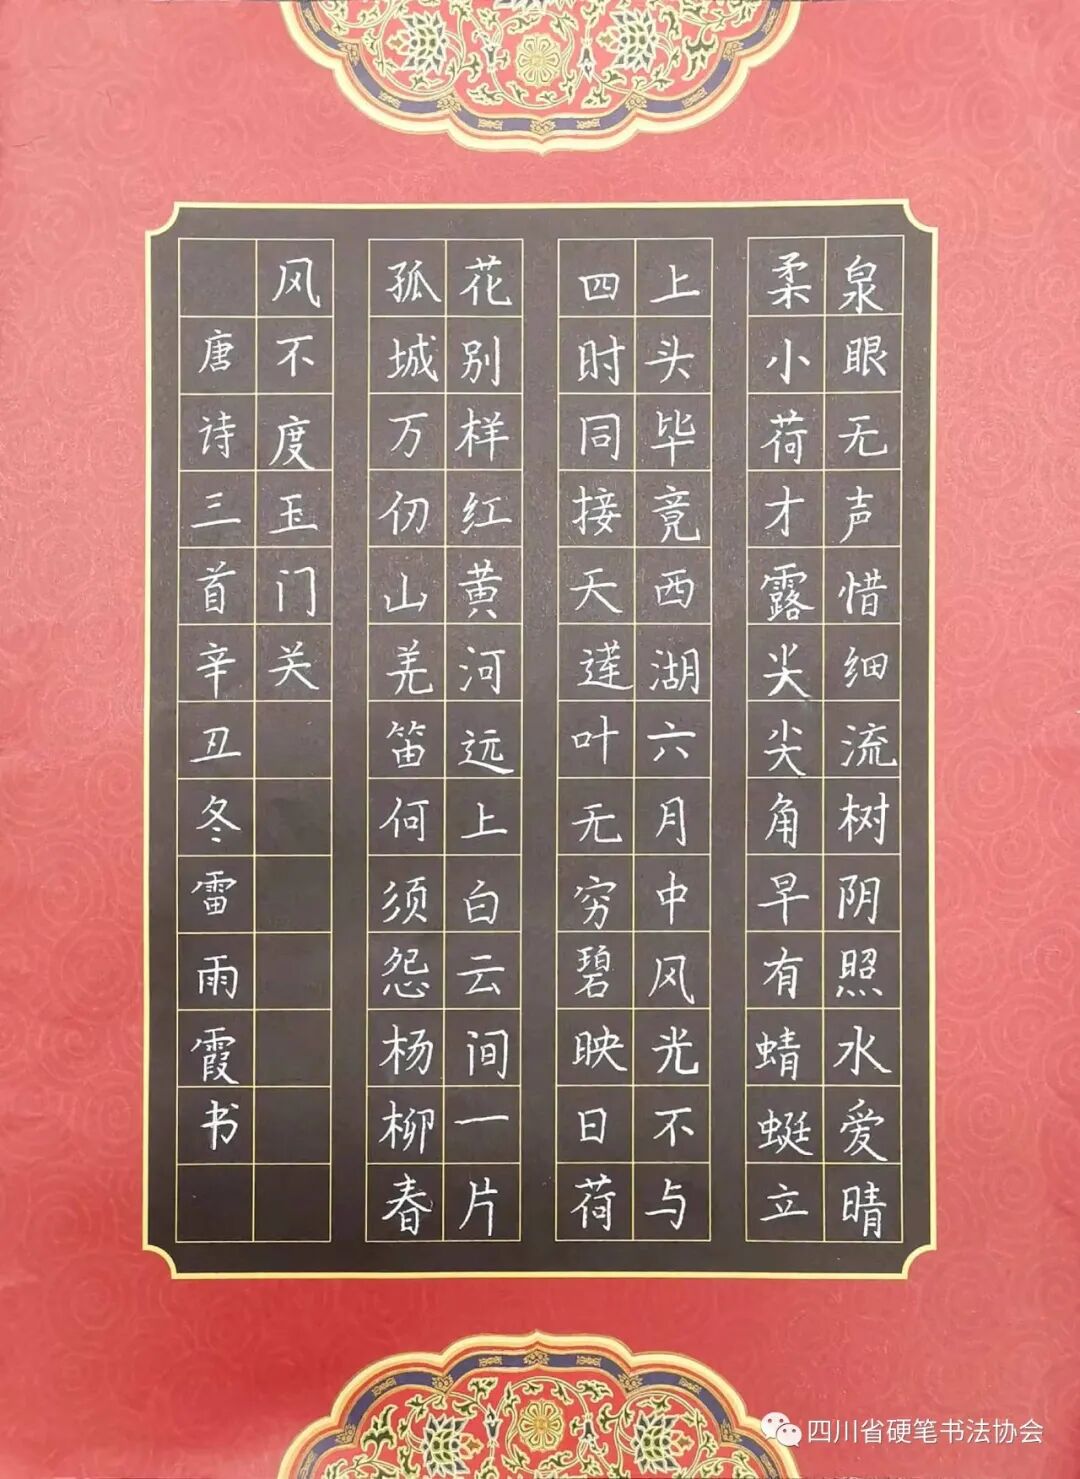 泉眼无声惜细流树阴照水爱晴
柔小荷才露尖尖角早有蜻蜓立
上头毕竟西湖六月中风光不与
四时同接天莲叶无穷碧映日荷
花别样红黄河远上白云间一片
孤城万仞山羌笛何须怨杨柳春
风不度玉门关
唐诗三首辛丑冬雷雨霞书
四川省硬笔书法协会